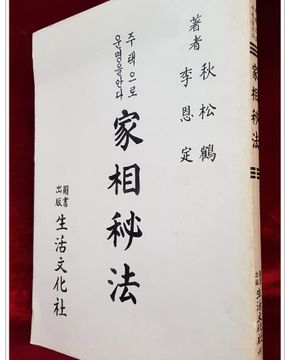 著者 秋松鶴
李恩定
주택으로
운명을안다
家相秘法
圖書
出版
生活文化社
家相秘法
圖書
出版
生活文化社